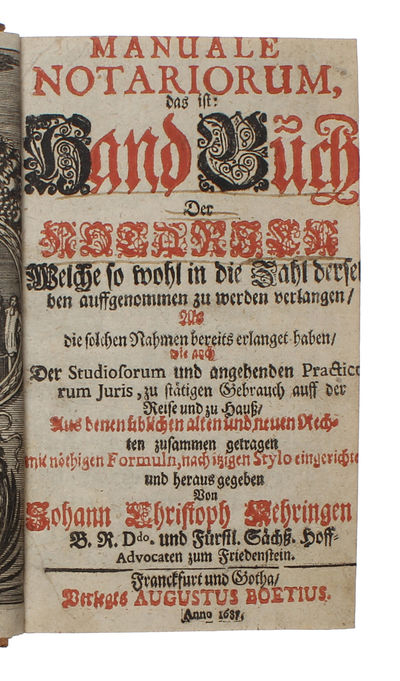 MANUALE
NOTARIORUM,
das ist:
Hand Büch
Der
NOTARIEN
Welche so wohl in die Zahl dersel
ben auffgenommen zu werden verlangen/
Als
die solchen Nahmen bereits erlanget haben/
wie auch
Der Studiosorum und angehenden Practico
rum Juris, zu stätigen Gebrauch auff der
Reise und zu Hauß/
Aus denen üblichen alten und neuen Rech-
ten zusammen getragen
mit nöthigen Formuln, nach itzigen Stylo eingerichtet
und heraus gegeben
Von
Johann Christoph Nehringen
B. R. Ddo. und Fürstl. Sächß. Hoff-
Advocaten zum Friedenstein.
Franckfurt und Gotha/
Verlegts AUGUSTUS BOETIUS.
Anno 1687.